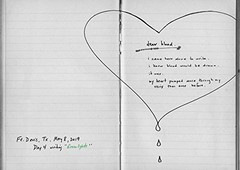 Ft. Davis, Tx, May 8, 2014
Day 4 writing
dear blood
i came here alone to write.
i knew blood would be drawn.
it was.
my heart pumped more through my